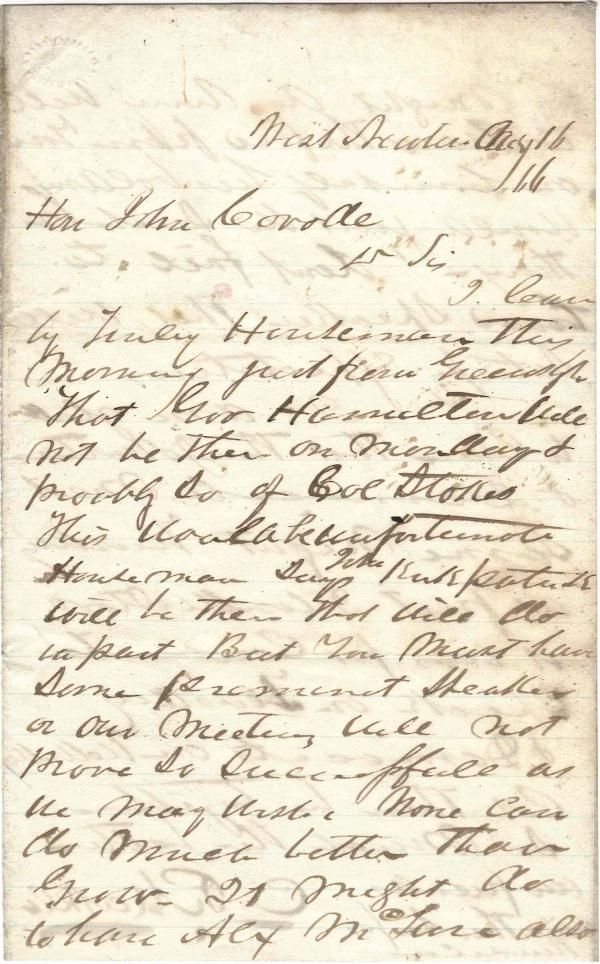 West Newton Aug 16
/66
Hon John Covode
Dr Sir
I learn
by Houseman This
Morning just from Greensbg
That Gov Hamilton will
not be there on Monday &
probly So of Col Stokes
This would be unfortunate
Houseman Says John Kirkpatrick
will be there that will do
in part But You Must have
Some prominent Speaker
or our Meeting will not
prove So Successfull as
we may wish. None can
do Much better than
Grow - It Might do
to have Alx McClure also